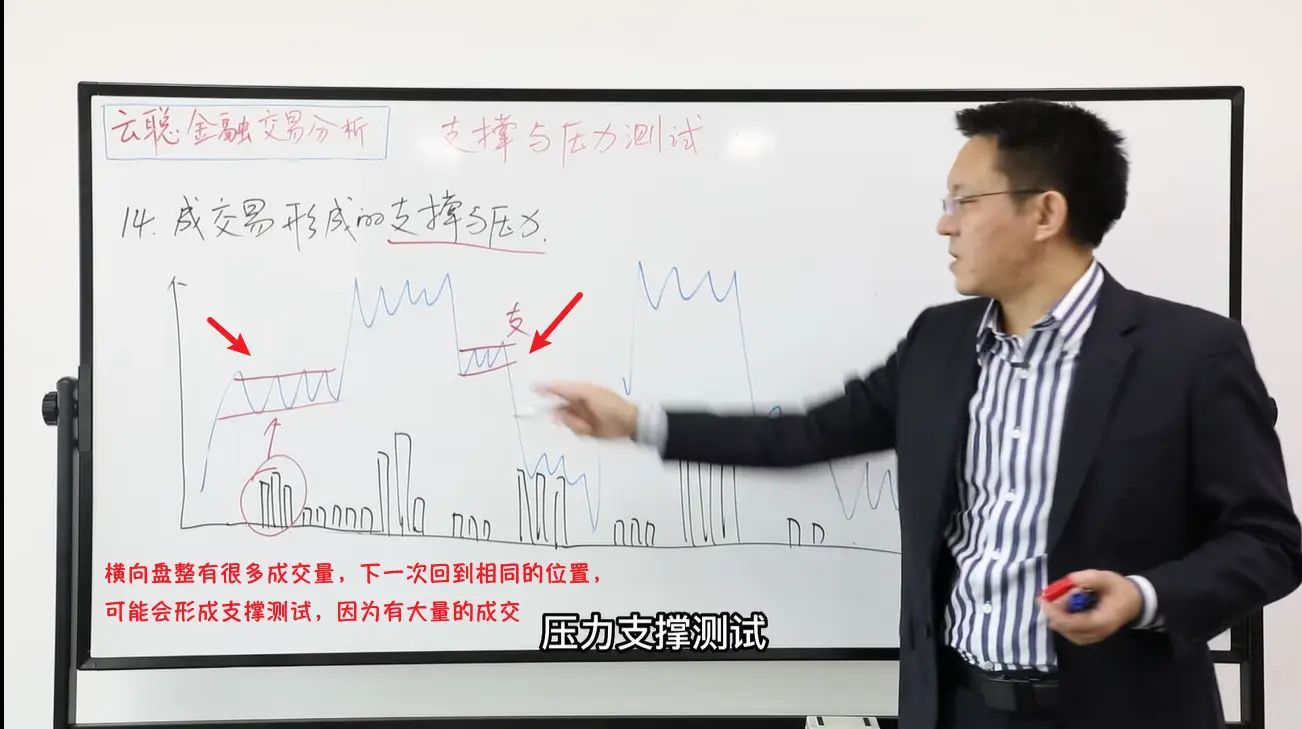 云聪金融交易分析
支撑与压力测试
14. 成交易形成的支撑与压力.
支
横向盘整有很多成交量，下一次回到相同的位置，
可能会形成支撑测试，因为有大量的成交
压力支撑测试